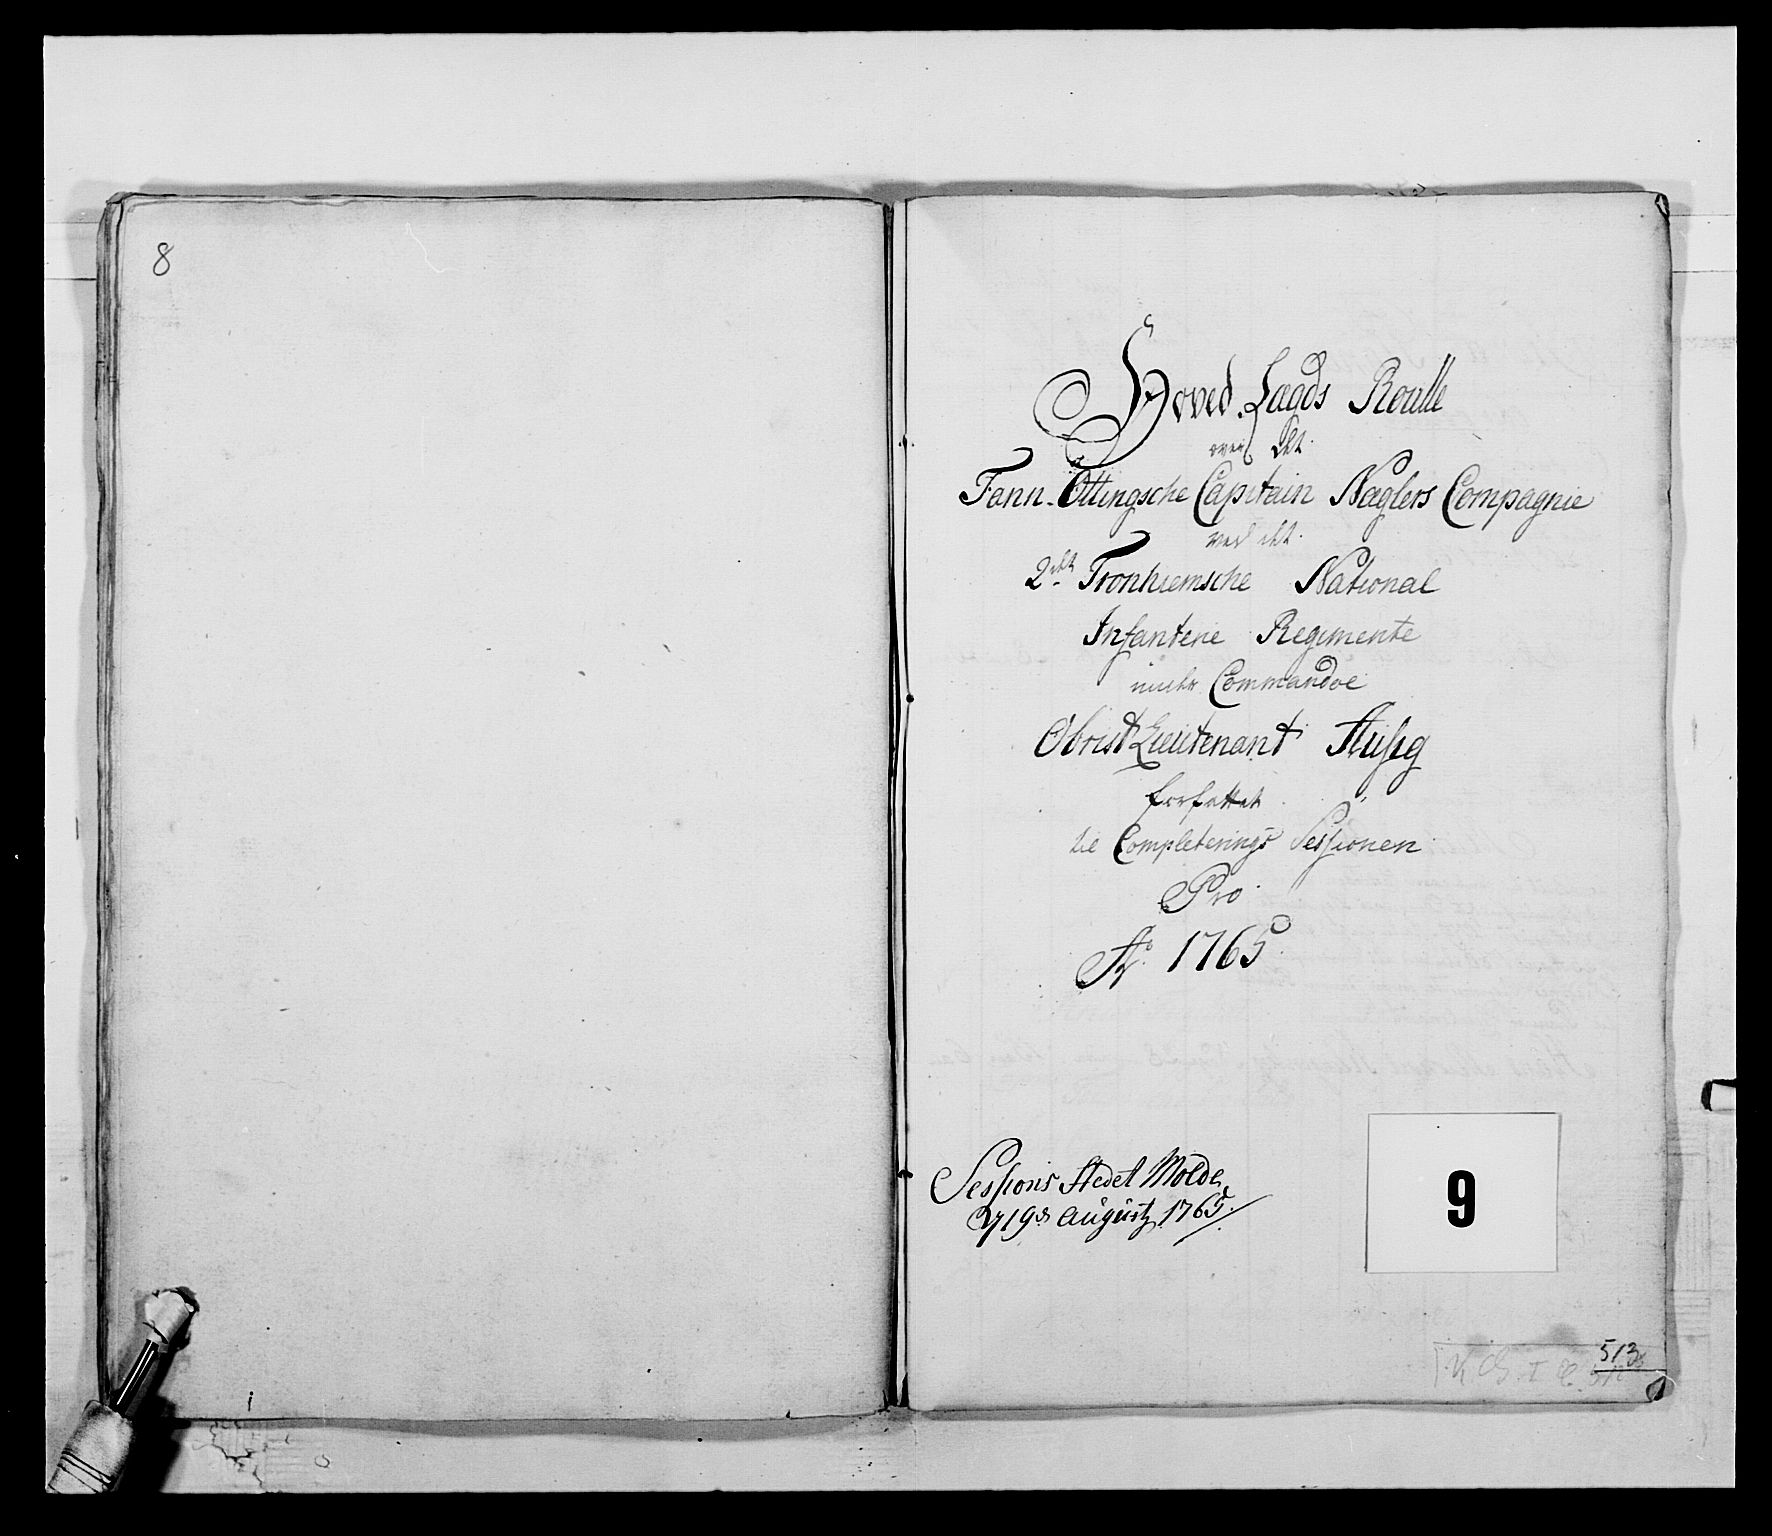 8
Hoved Lægds Roulle
over det
Fann-Ottingsche Capitain Næglers Compagnie
ved det
2det Tronhiemsche National
Infanterie Regimente
under Commandoe
Obrist Lieutenant
forfattet
Completerings Sessionen
Pro
Ao 1765
Sessions Stedet Molde
19de Augustz 1765
9
513